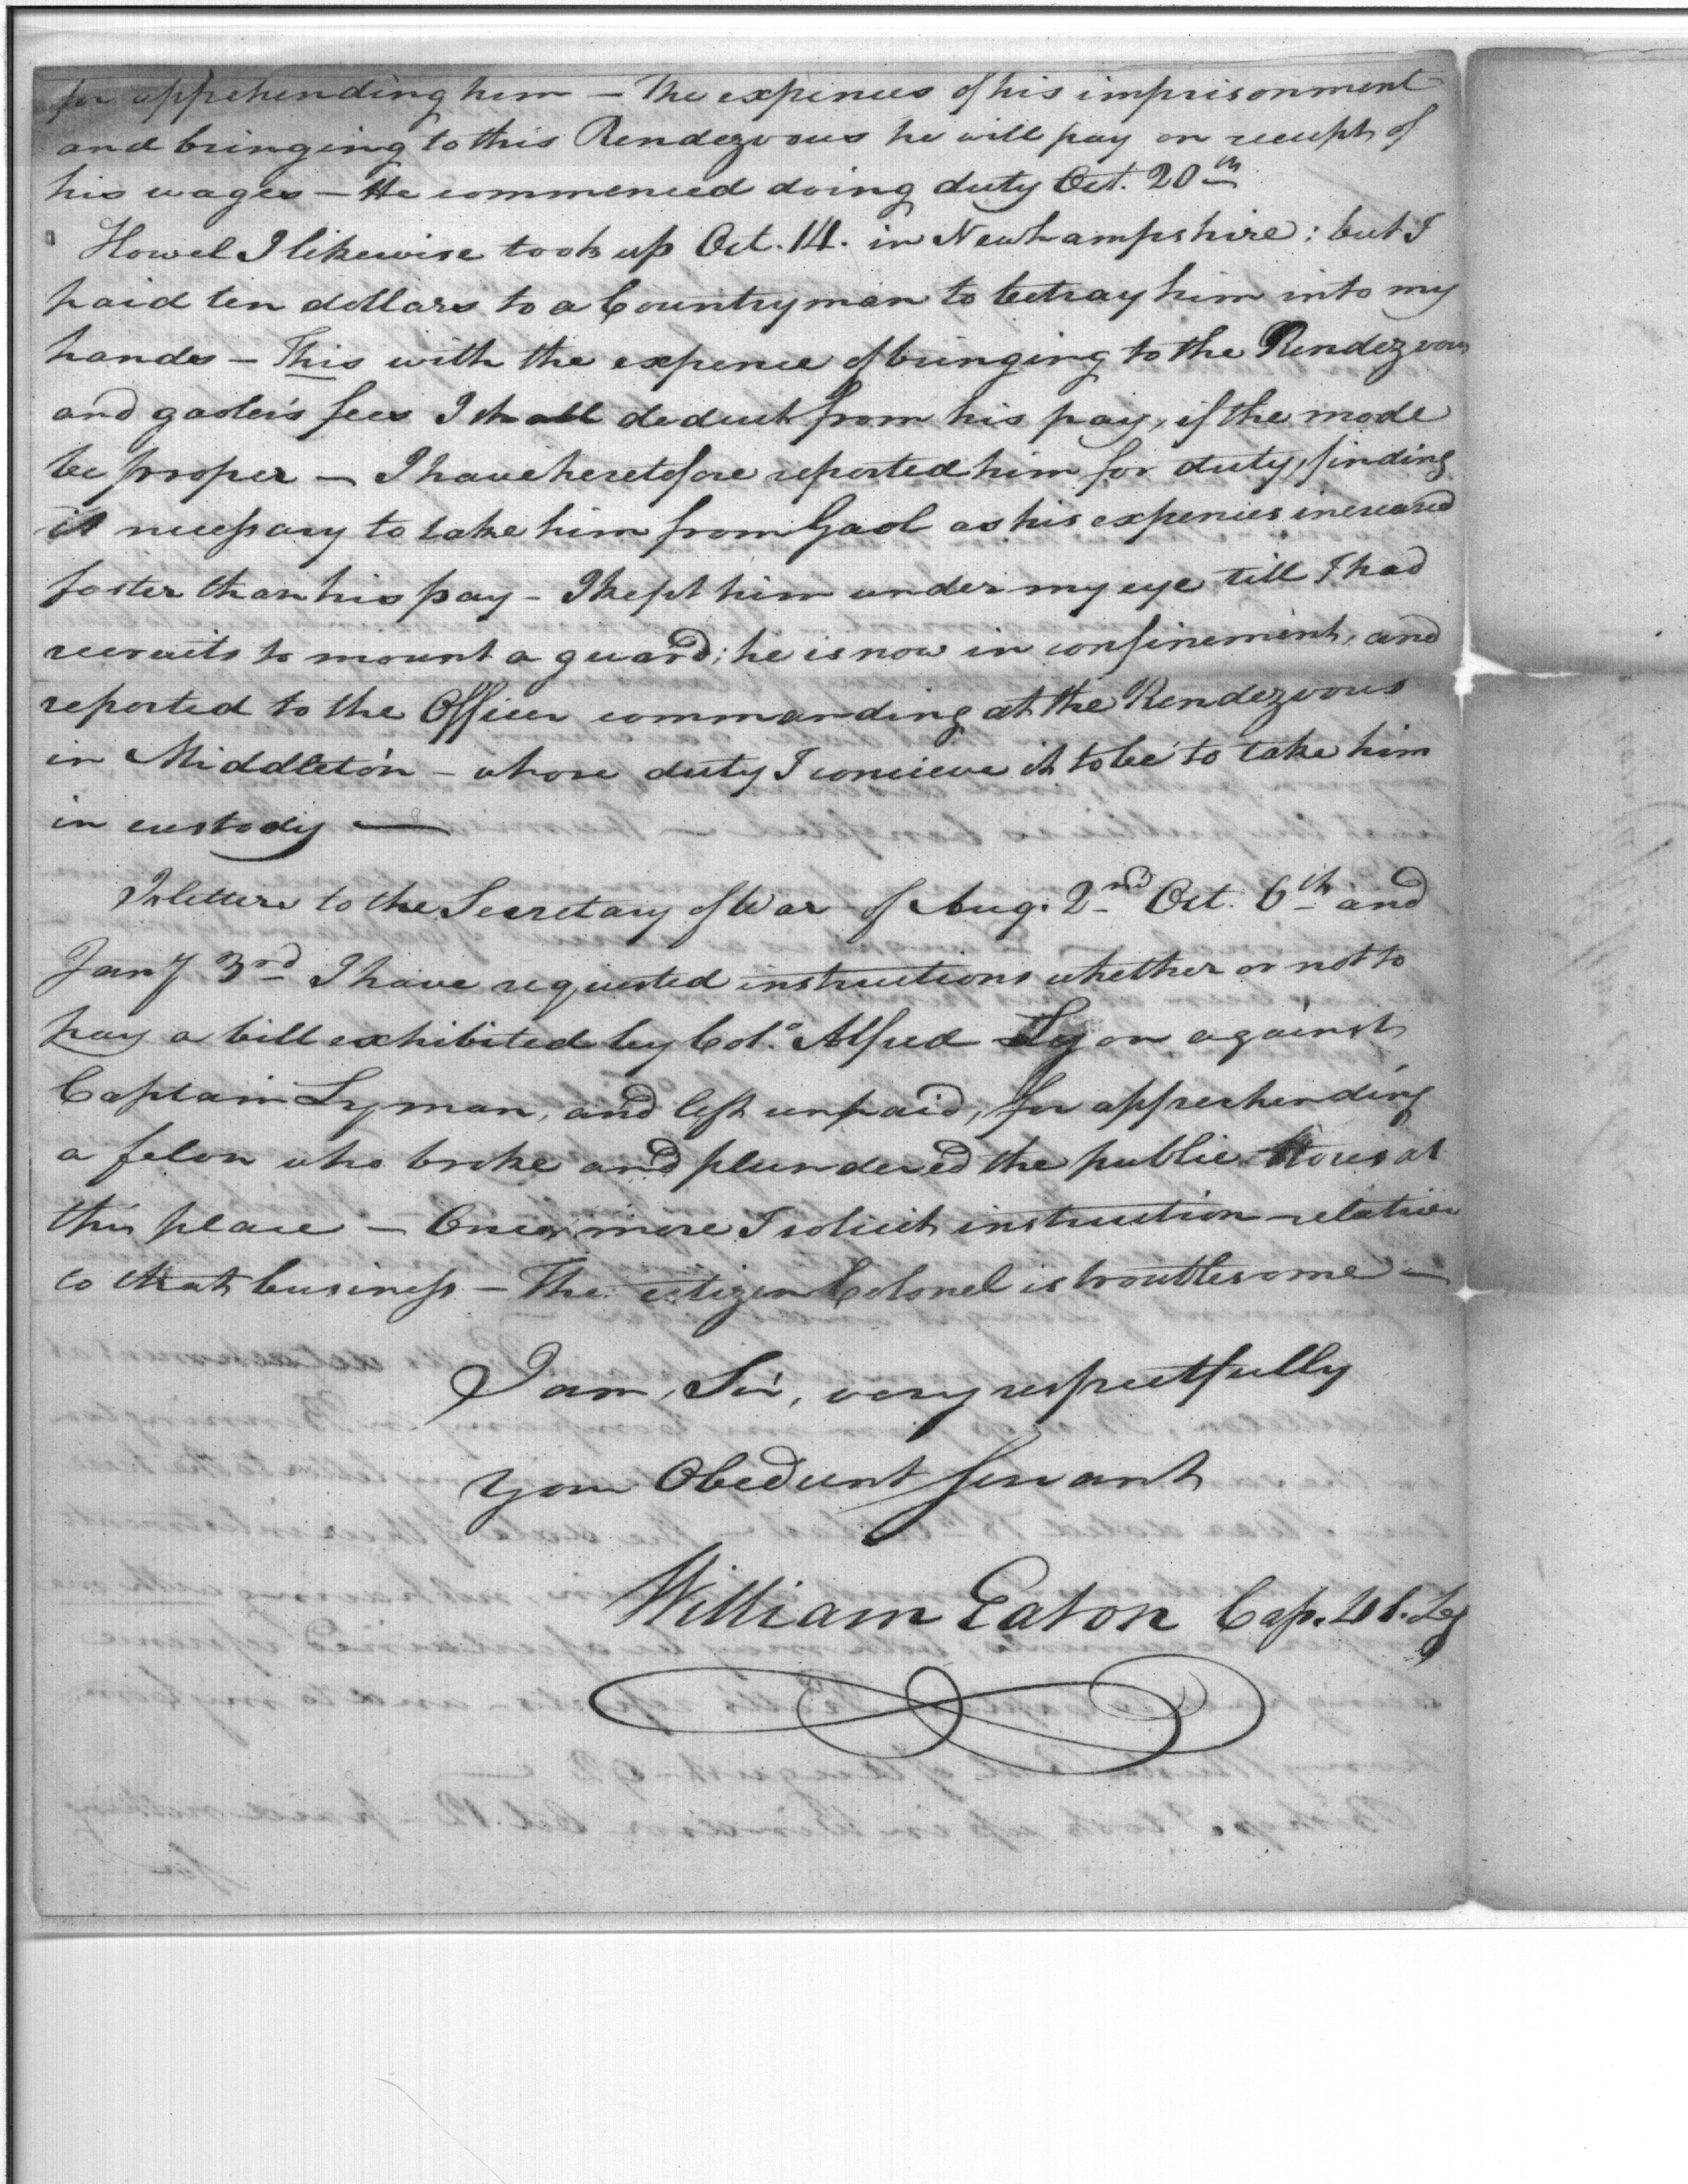 for apprehending him – The expences of his imprisonment
and bringing to this Rendezvous he will pay on receipt of
his wages – He commenced doing duty Oct. 20th
Howel I likewise took up Oct. 14. in Newhampshire: but I
paid ten dollars to a Countryman to betray him into my
hands – This with the expence of bringing to the Rendezvous
and gaoler's fees I shall deduct from his pay, if the mode
be proper – I have heretofore reported him for duty, finding
it necessary to take him from Gaol as his expences increased
faster than his pay – I kept him under my eye till I had
recruits to mount a guard; he is now in confinement, and
reported to the Officer commanding at the Rendezvous
in Middleton – whose duty I concieve it to be to take him
in custody —
In letters to the Secretary of War of Aug. 2nd Oct. 6th and
Jany 3rd I have requested instructions whether or not to
pay a bill exhibited by Col.o Alfred Lyon against
Captain Lyman, and left unpaid, for apprehending
a felon who broke and plundered the public Stores at
this place – Once more I solicit instruction relative
to that business – The citizen Colonel is troublesome –
I am, Sir, very respectfully
your Obedient Servant
William Eaton Cap. 4 S. Leg